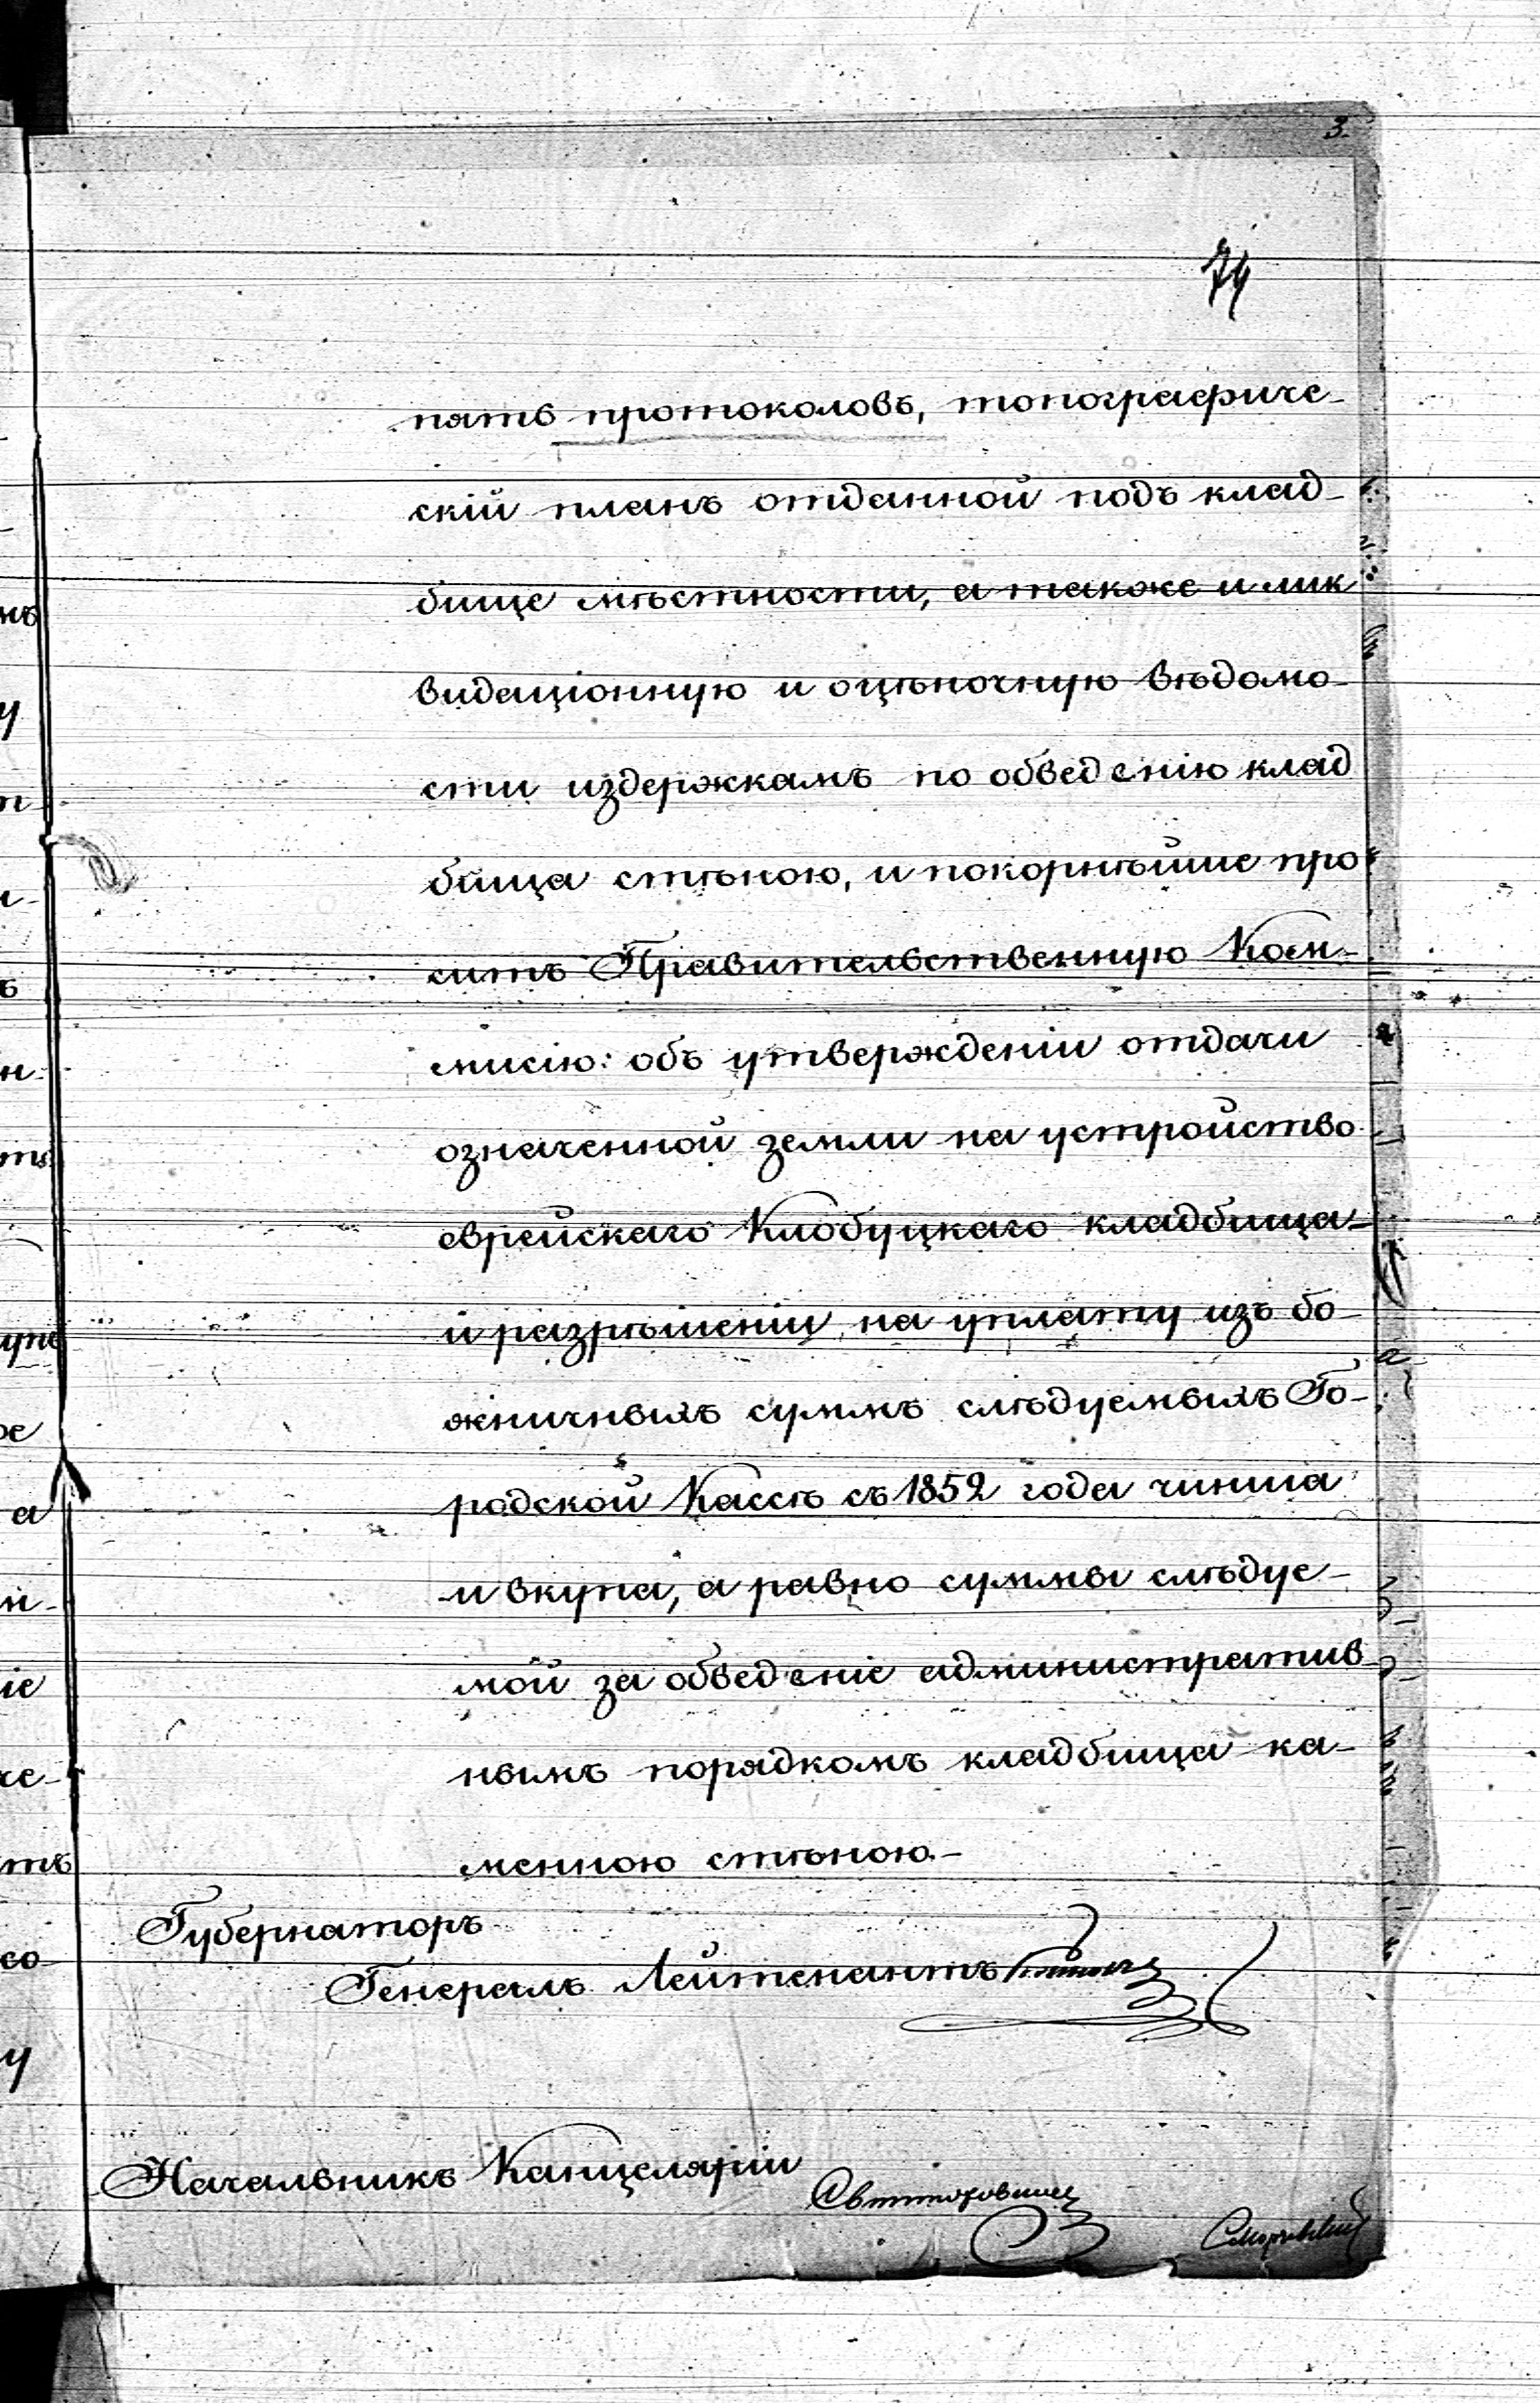 3.
74
пять протоколовъ, топографиче-
скій планъ отданной подъ клад-
бище мѣстности, а также и лик
видаціонную и оцѣночную вѣдомо-
сти издержкамъ по обведенію клад
бища стѣною, и покорнѣйше про
ситъ Правительственную Ком-
мисію: объ утвержденіи отдачи
означенной земли на устройство
еврейскаго Клобуцкаго кладбища
и разрѣшеніи на уплату изъ бо-
жничныхъ суммъ слѣдуемыхъ Го-
родской Кассѣ съ 1852 года чинша
и вкупа, а равно суммы слѣдуе-
мой за обведеніе административ
нымъ порядкомъ кладбища ка-
менною стѣною.-
Губернаторъ
Генералъ Лейтенантъ
Начальникъ Канцеляріи